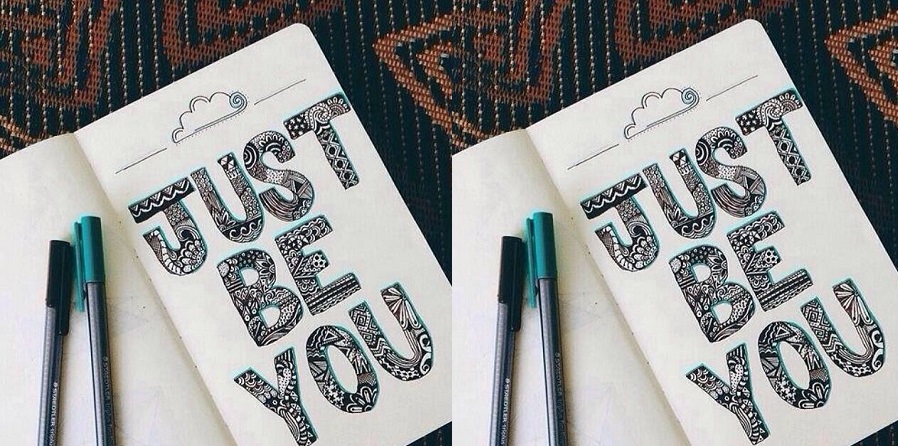 JUST
BE
YOU
STAEDTLER
JUST
BE
YOU
STAEDTLER